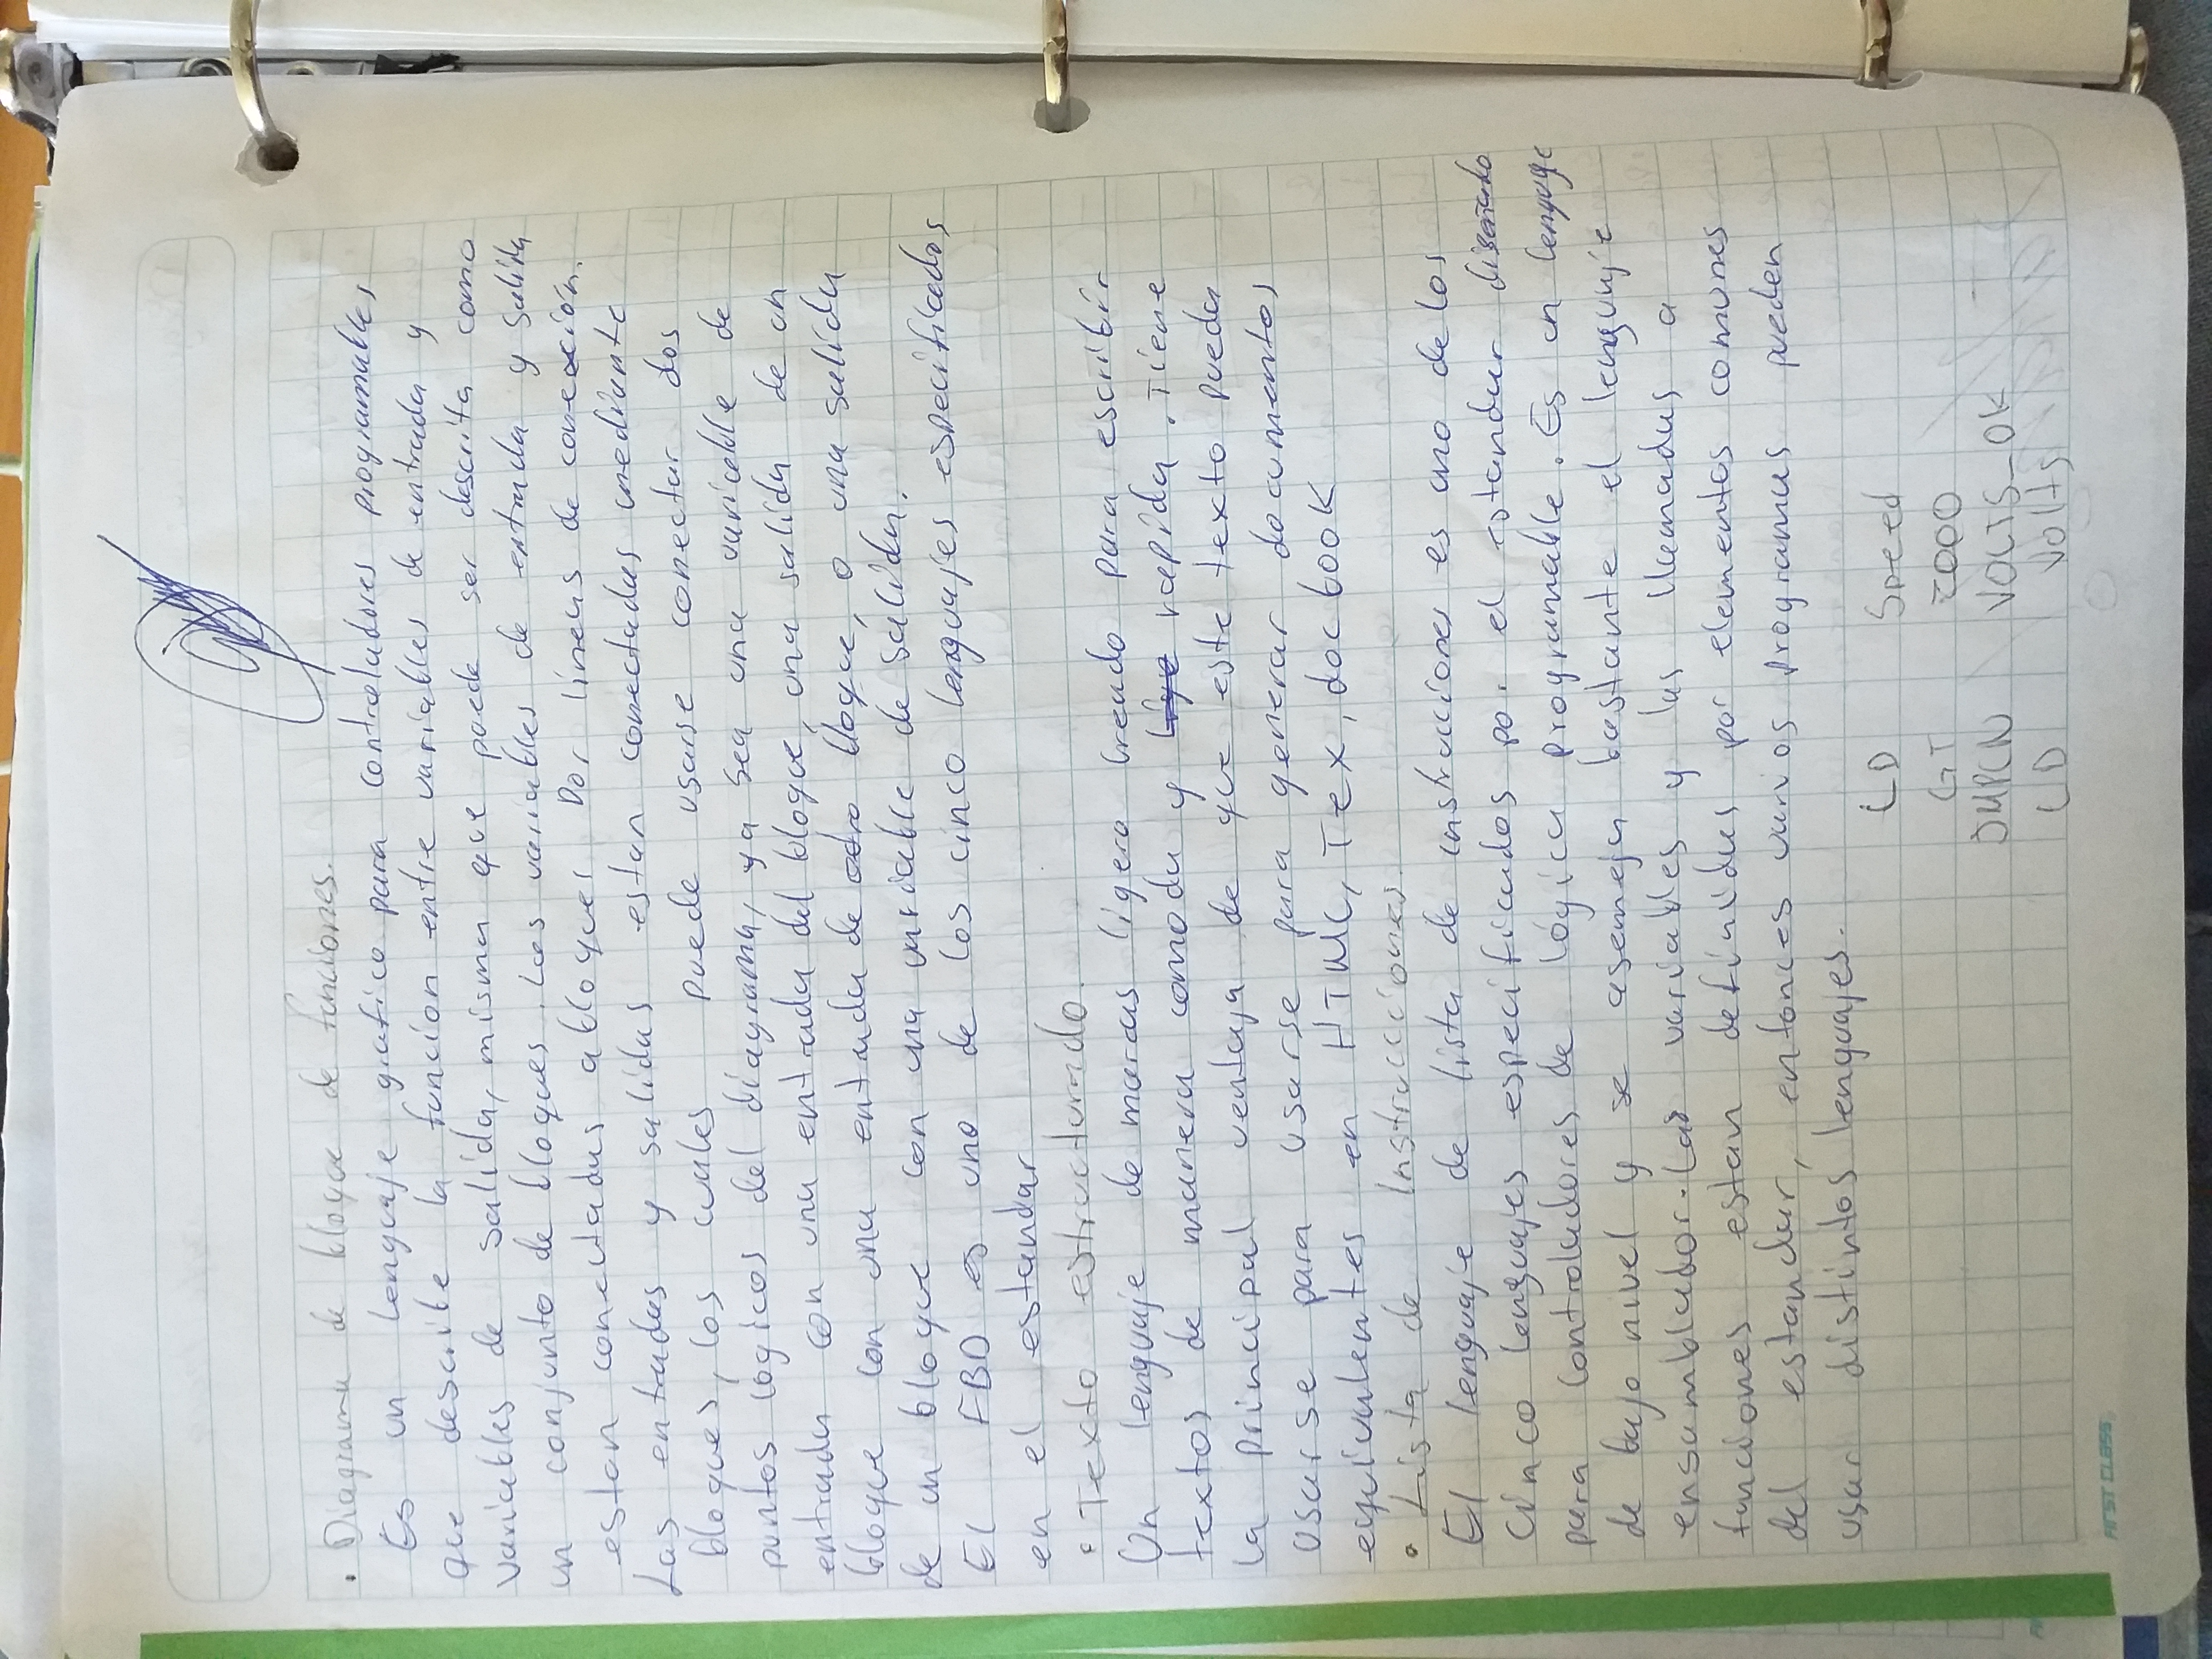 . Diagrama de bloque de funciones.
Es un lenguaje grafico para controladores programables
que describe la funcion entre variables de entrada y
variables de salida, misma que puede ser descrita como
un conjunto de bloques. Las variables de entrada y salida
estan conectadas a bloques por lineas de conexión.
Las entradas y salidas estan conectadas mediante
bloques, los cuales puede usarse conectar dos
puntos logicos del diagrama, ya sea una variable de
entrada con una entrada del bloque, una salida de un
bloque con una entrada de otro bloque, o una salida
de un bloque con una variable de salida.
El FBD es uno de los cinco lenguajes especificados
en el estandar
• Texto estructurado.
Un lenguaje de marcas ligero creado para escribir
textos de manera comoda y rapida. Tiene
la principal ventaja de que este texto pueda
usarse para usarse para generar documentos
equivalentes en HTML, Tex, docbook
• Lista de Instrucciones.
El lenguaje de lista de instrucciones es uno de los
cinco lenguajes especificados por el estandar diseñado
para controladores de lógica programable. Es un lenguge
de bajo nivel y se asemeja bastante el lenguaje
ensamblador. Las variables y las llamadas a
funciones estan definidas por elementos comunes
del estandar, entonces varios programas pueden
usar distintos lenguajes.
LD Speed
GT 2000
JMPCN VOLTS_OK
LD Volts
FIRST CLASS